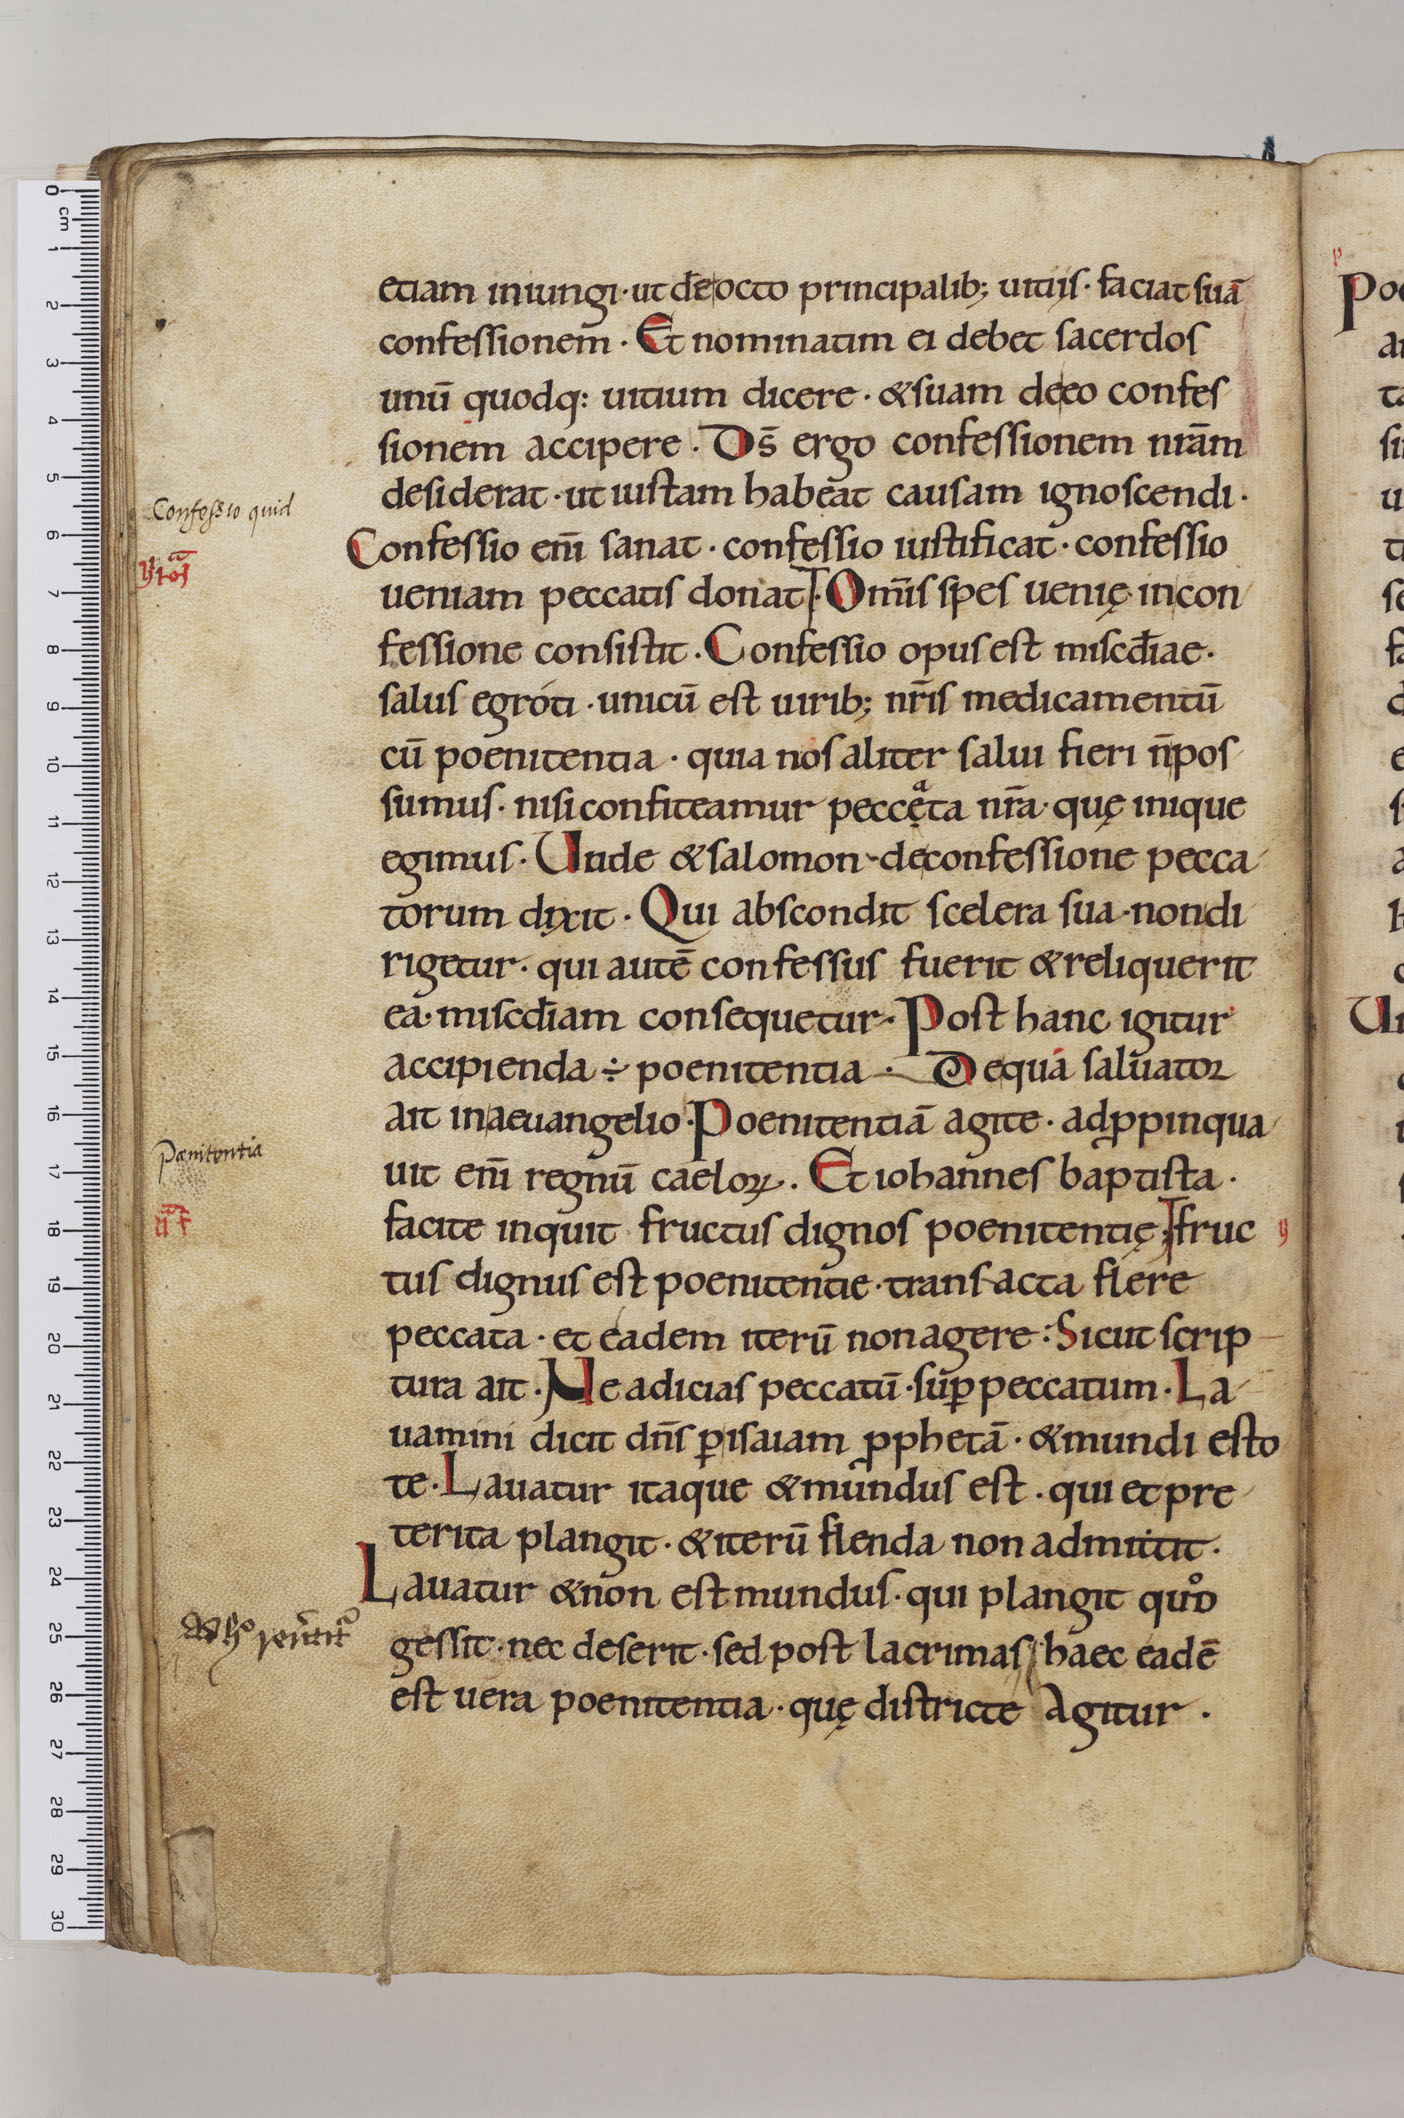 etiam iniungi · ut de octo principalib; uitiis · faciat suā
confessionem · Et nominatim ei debet sacerdos
unū quodq: uitium dicere · & suam de eo confes
sionem accipere · Ds̄ ergo confessionem nrām
desiderat · ut iustam habeat causam ignoscendi ·
Confessio quid
Confessio enī sanat · confessio iustificat · confessio
ueniam peccatis donat · Omīs spes uenię in con
fessione consistit · Confessio opus est misc̄diae ·
salus egroti · unicū est uirib; nrīs medicamentū
cū poenitentia · quia nos aliter salui fieri n̄ pos
sumus · nisi confiteamur peccęata nrā · quę inique
egimus · Unde & salomon · de confessione pecca
torum dixit · Qui abscondit scelera sua · non di
rigetur · qui autē confessus fuerit & reliquerit
ea · misc̄diam consequetur · Post hanc igitur
accipienda ÷ poenitentia · De qua saluator
ait in aeuangelio · Poenitentiā agite · adꝓpinqua
Pænitentia
uit enī regnū caeloꝝ · Et iohannes baptista ·
facite inquit fructus dignos poenitentię · fruc
y
tus dignus est poenitentie · transacta flere
peccata · et eadem iterū non agere : Sicut scrip
tura ait · Ne adicias peccatū · suꝑ peccatum · La
uamini dicit dn̄s ꝑ isaiam ꝓphetā · & mundi esto
te · Lauatur itaque & mundus est · qui et pre
terita plangit · & iterū flenda non admittit ·
Lauatur & non est mundus · qui plangit quod
gessit · nec deserit · sed post lacrimas haec eadē
est uera poenitentia · quę districte Agitur ·